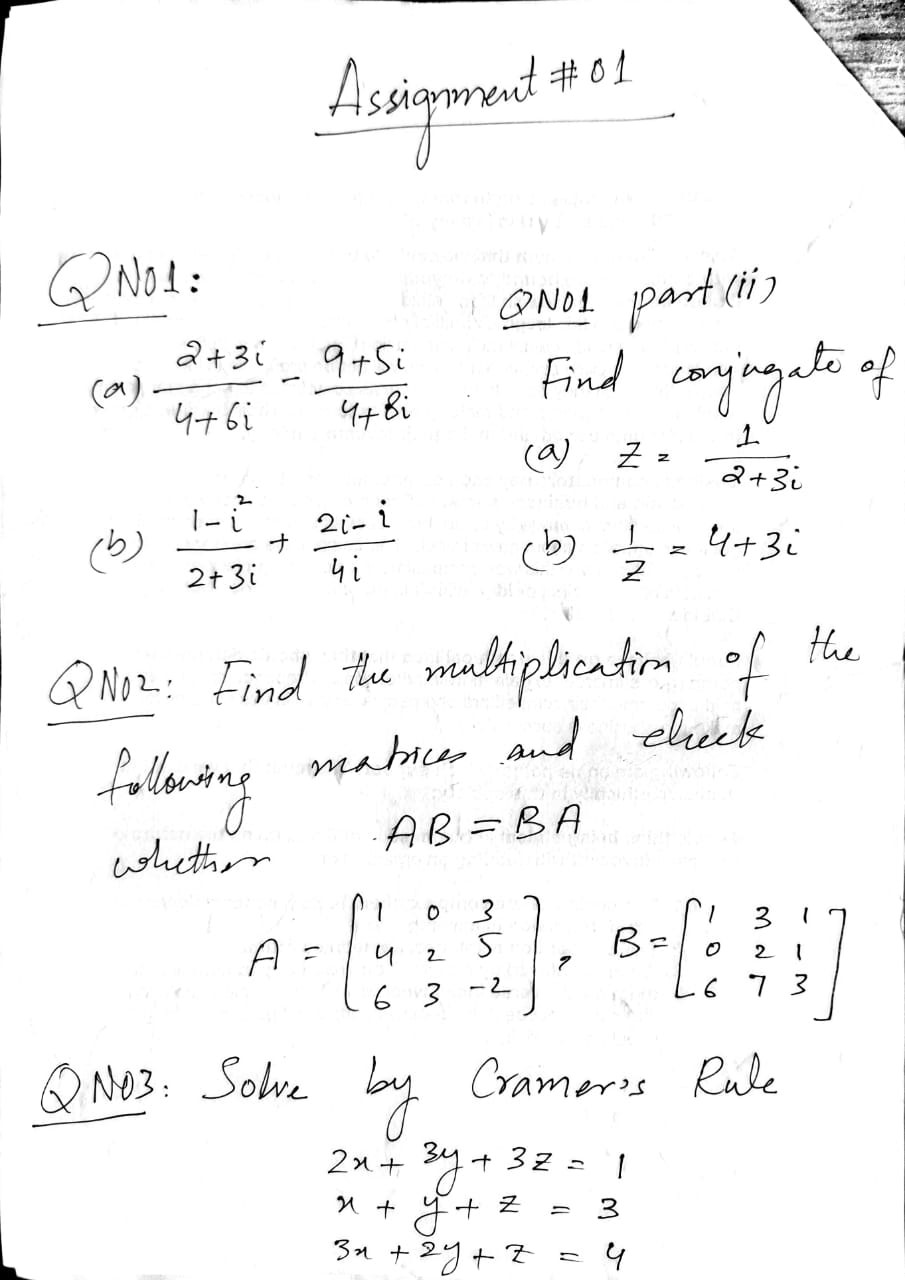 Assignment # 01
QNO1:
(a) (2+3i)/(4+6i) - (9+5i)/(4+8i)
(b) (1-i²)/(2+3i) + (2i-i)/(4i)
QNO1 part(ii)
Find conjugate of
(a) Z = 1/(2+3i)
(b) 1/Z = 4+3i
QNO2: Find the multiplication of the
following matrices and check
whether AB = BA
A = [1 0 3; 4 2 5; 6 3 -2], B = [1 3 1; 0 2 1; 6 7 3]
QNO3: Solve by Cramer's Rule
2x + 3y + 3z = 1
x + y + z = 3
3x + 2y + z = 4